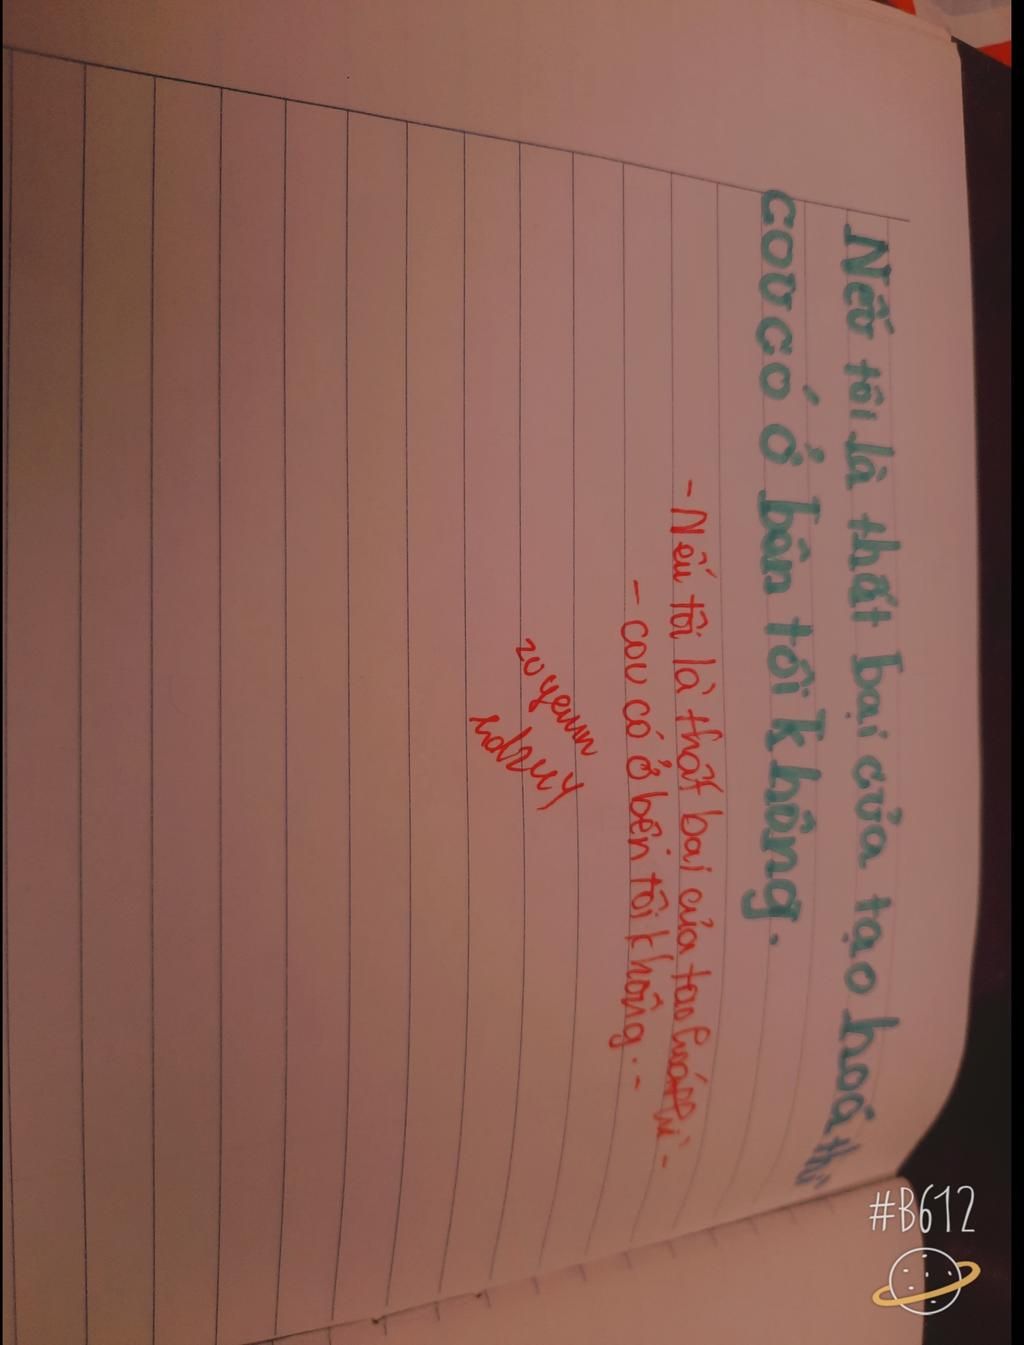 Nếu tôi là thất bại của tạo hoá thì
cou có ở bên tôi không.
- Nếu tôi là thất bại của tạo hoá thì -
- cou có ở bên tôi không. -
zuyenn
#B612